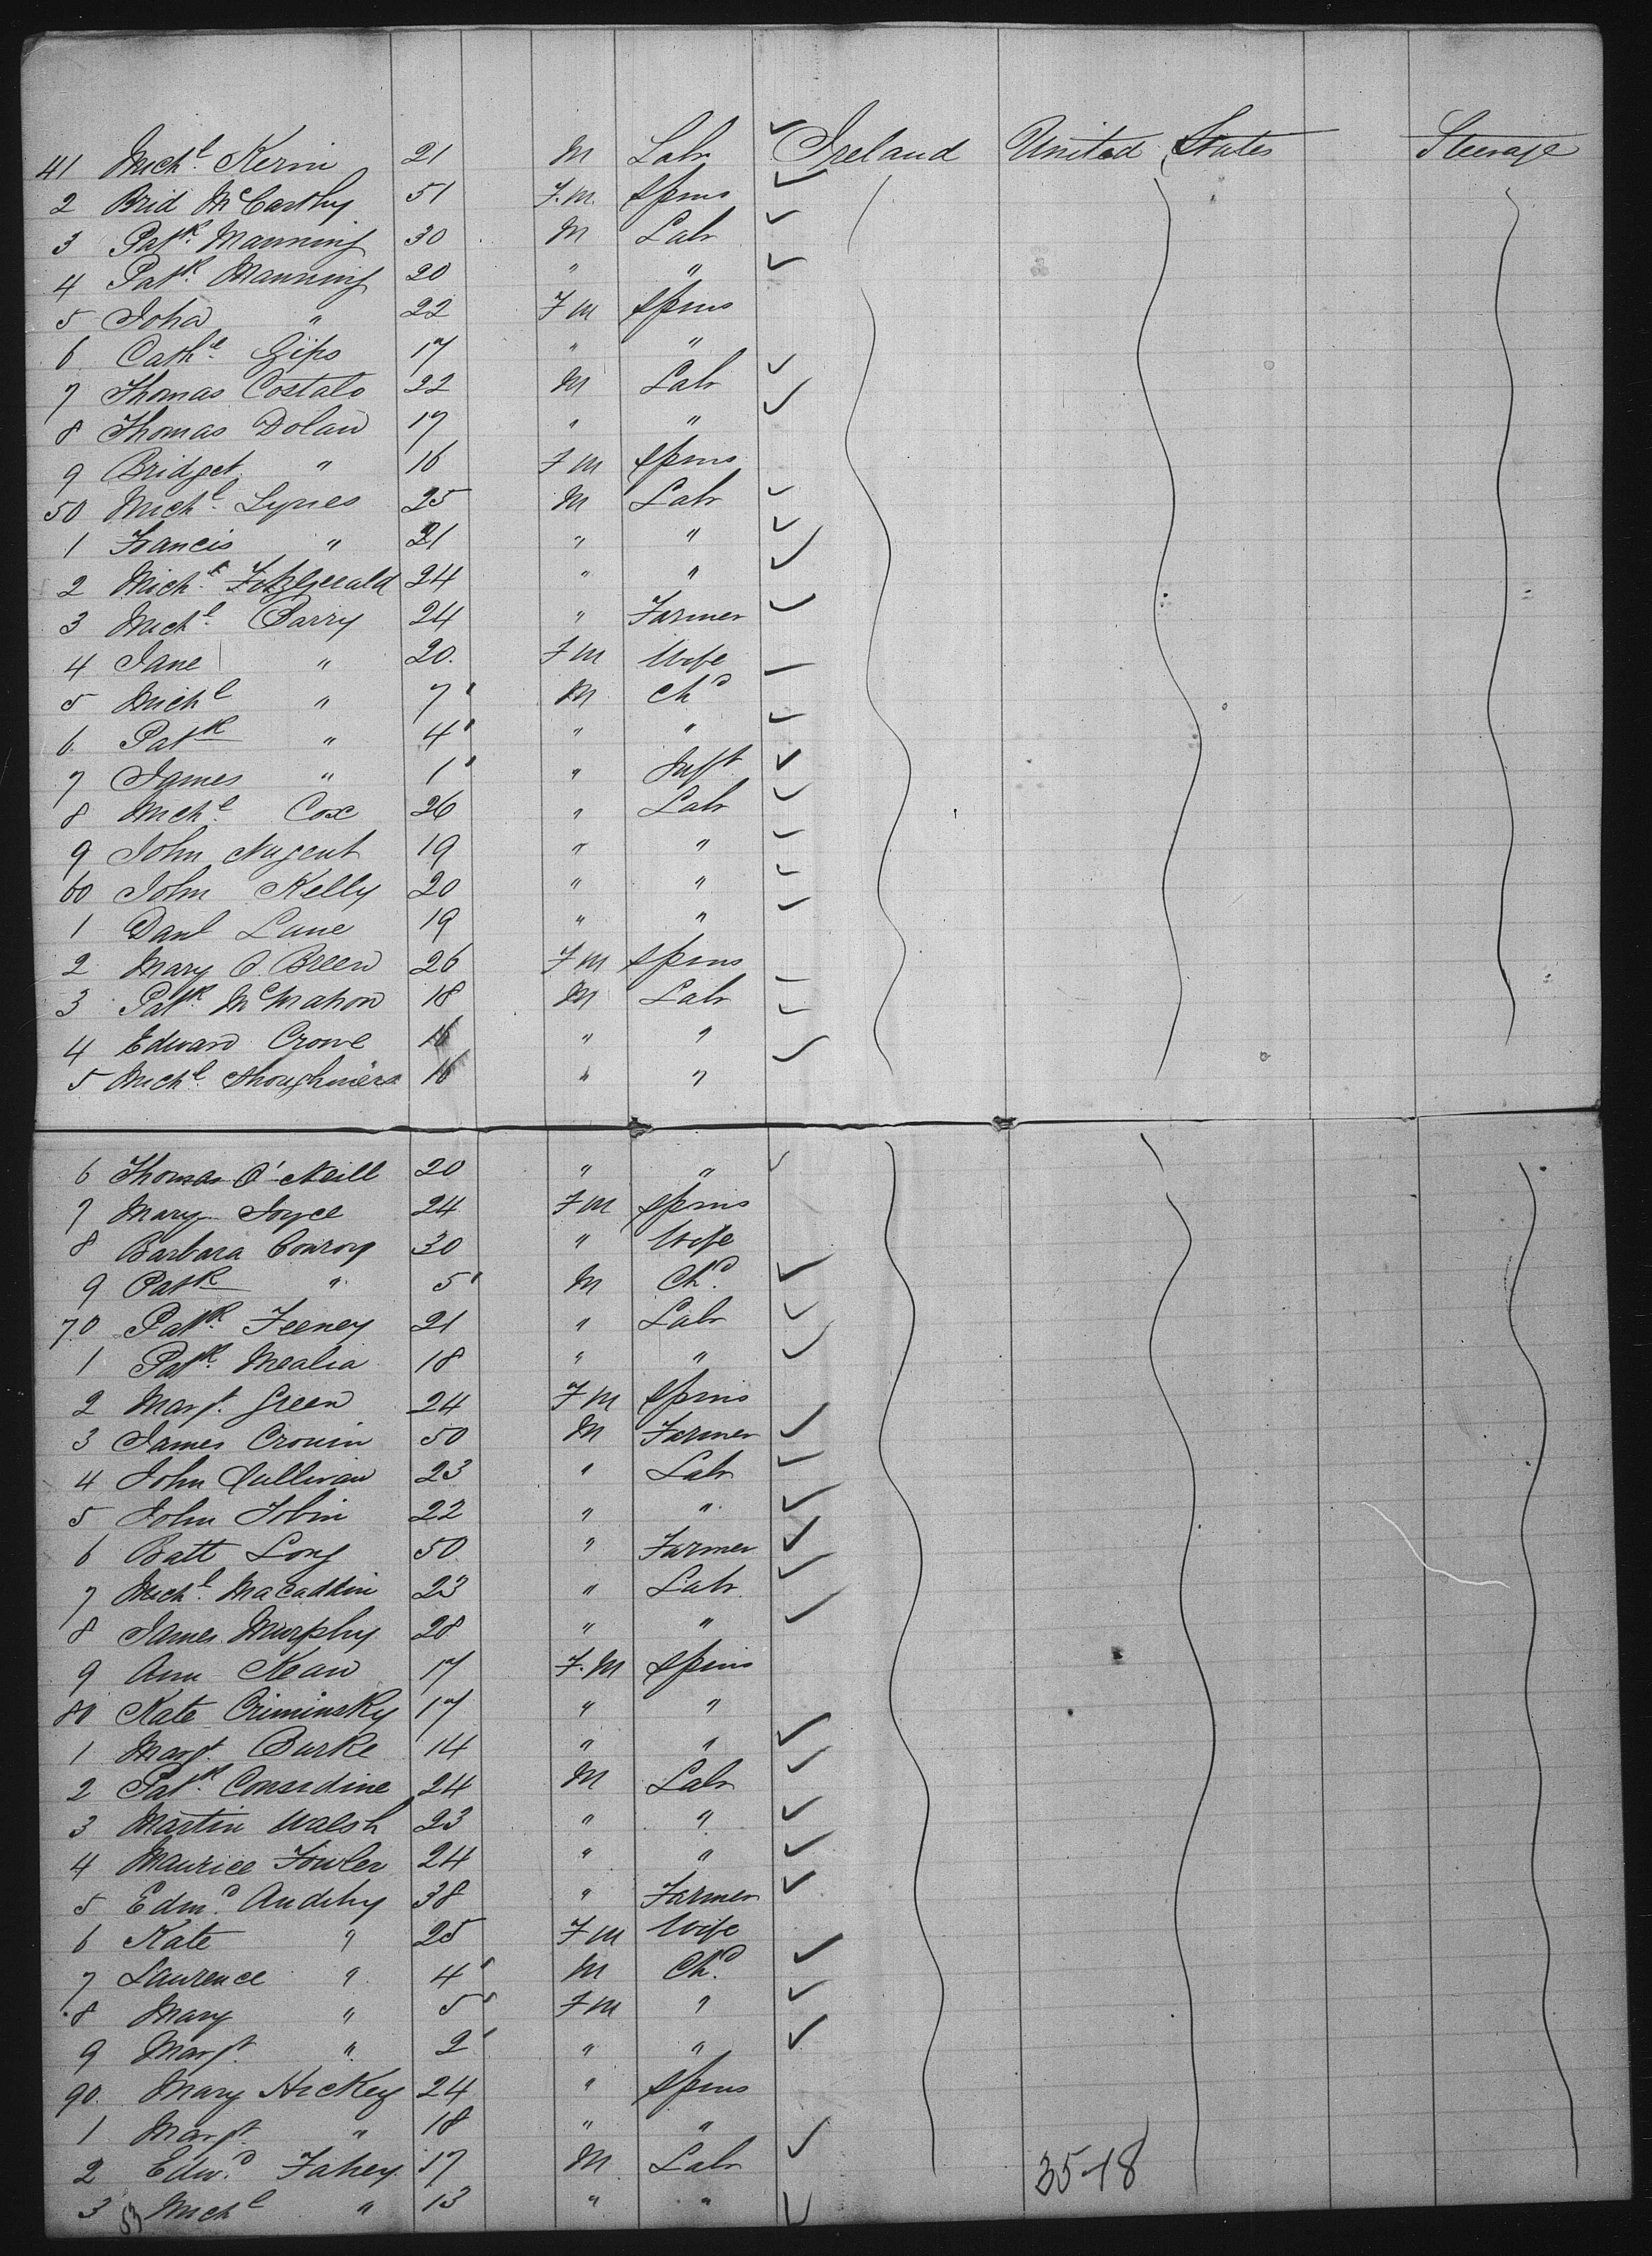 41 Michl. Kerin 21 M Labr Ireland United States Steerage
2 Brid McCarthy 51 F.M. Spins
3 Patk. Manning 30 M Labr
4 Patk. Manning 20 " "
5 Joha " 22 F M Spins
6 Cathe. 17 " "
7 Thomas Costalo 22 M Labr
8 Thomas Dolan 17 " "
9 Bridget " 16 F M Spins
50 Michl. Lynes 25 M Labr
1 Francis " 21 " "
2 Michl. Fitzgerald 24 " "
3 Michl. Barry 24 " Farmer
4 Jane " 20. F M Wife
5 Michl " 7' M Chd
6 Patk " 4' " "
7 James " 1' " Inft
8 Michl. Cox 26 " Labr
9 John Nugent 19 " "
60 John Kelly 20 " "
1 Danl Lane 19 " "
2 Mary O'Breen 26 F M Spins
3 Patk. McMahon 18 M Labr
4 Edward Crowe 16 " "
5 Michl. 16 " "
6 Thomas O'Neill 20 " "
7 Mary Joyce 24 F M Spins
8 Barbara Conroy 30 " Wife
9 Patk " 5' M Chd.
70 Patk. Feeney 21 " Labr
1 Patk. Mealia 18 " "
2 Margt. Green 24 F M Spins
3 James Cronin 50 M Farmer
4 John Sullivan 23 " Labr
5 John Tobin 22 " "
6 Batt Long 50 " Farmer
7 Michl. Macaddin 23 " Labr
8 James Murphy 28 " "
9 Ann Kean 17 F.M Spins
80 Kate Criminsky 17 " "
1 Margt. Burke 14 " "
2 Patk. Considine 24 M Labr
3 Martin Walsh 23 " "
4 Maurice Fowler 24 " "
5 Edmd. 38 " Farmer
6 Kate " 25 F M Wife
7 Laurence " 4' M Chd.
8 Mary " 5' F M "
9 Margt. " 2' " "
90. Mary Hickey 24 " Spins
1 Margt. " 18 " "
2 Edwd. Fahey 17 M Labr 35-18
3 Michl " 13 " "
53